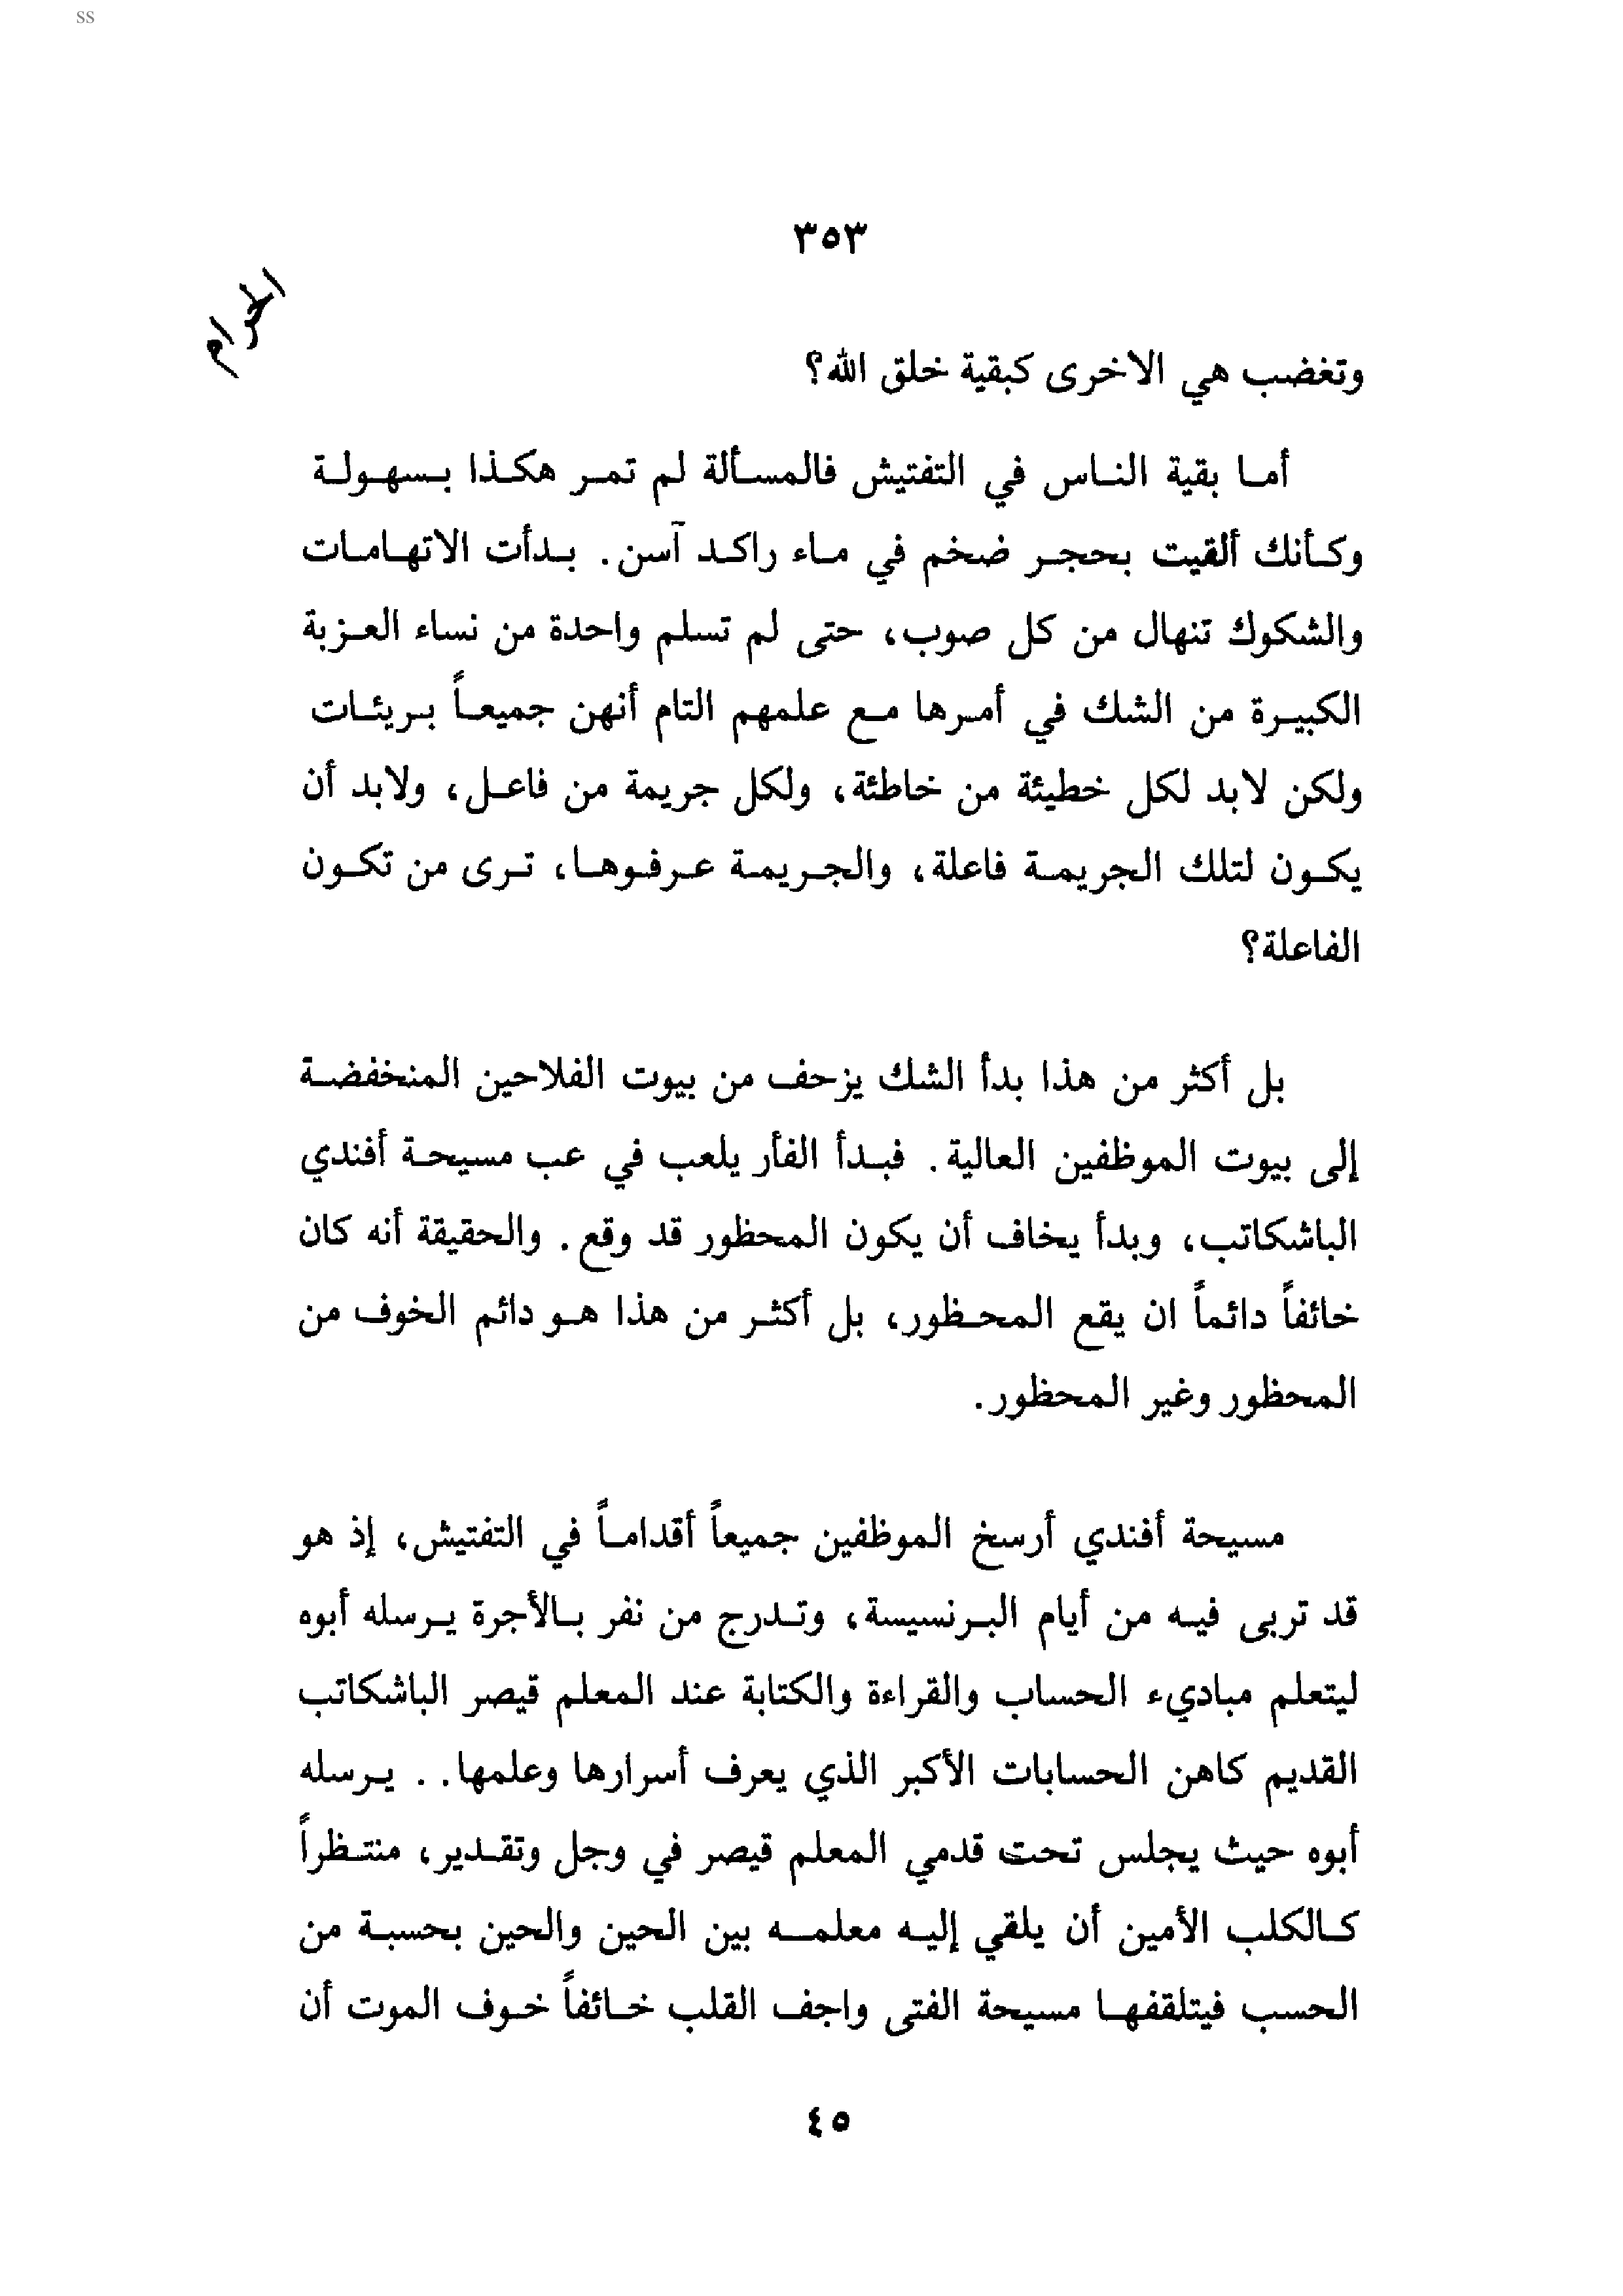 SS
٣٥٣
الحرام
وتغضب هي الاخرى كبقية خلق الله؟
أما بقية الناس في التفتيش فالمسألة لم تمر هكذا بسهولة
وكأنك ألقيت بحجر ضخم في ماء راكد آسن. بدأت الاتهامات
والشكوك تنهال من كل صوب، حتى لم تسلم واحدة من نساء العزبة
الكبيرة من الشك في أمرها مع علمهم التام أنهن جميعاً بريئات
ولكن لابد لكل خطيئة من خاطئة، ولكل جريمة من فاعل، ولابد أن
يكون لتلك الجريمة فاعلة، والجريمة عرفوها، ترى من تكون
الفاعلة؟
بل أكثر من هذا بدأ الشك يزحف من بيوت الفلاحين المنخفضة
إلى بيوت الموظفين العالية. فبدأ الفأر يلعب في عب مسيحة أفندي
الباشكاتب، وبدأ يخاف أن يكون المحظور قد وقع. والحقيقة أنه كان
خائفاً دائماً ان يقع المحظور، بل أكثر من هذا هو دائم الخوف من
المحظور وغير المحظور.
مسيحة أفندي أرسخ الموظفين جميعاً أقداماً في التفتيش، إذ هو
قد تربى فيه من أيام البرنسيسة، وتدرج من نفر بالأجرة يرسله أبوه
ليتعلم مباديء الحساب والقراءة والكتابة عند المعلم قيصر الباشكاتب
القديم كاهن الحسابات الأكبر الذي يعرف أسرارها وعلمها.. يرسله
أبوه حيث يجلس تحت قدمي المعلم قيصر في وجل وتقدير، منتظراً
كالكلب الأمين أن يلقي إليه معلمه بين الحين والحين بحسبة من
الحسب فيتلقفها مسيحة الفتى واجف القلب خائفاً خوف الموت أن
٤٥